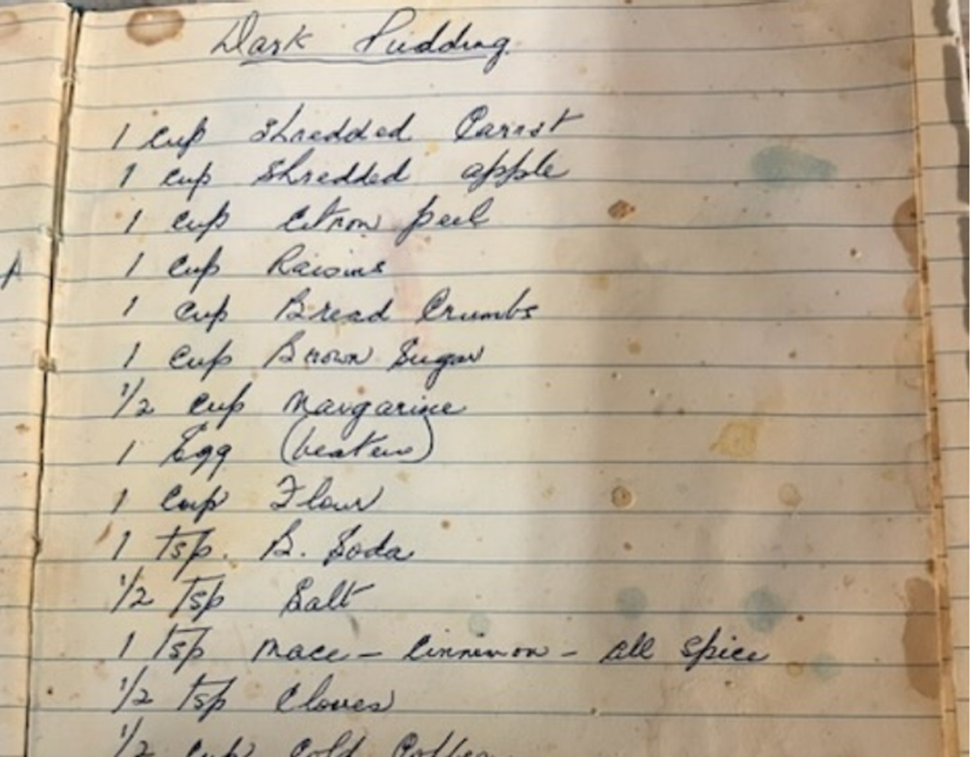 Dark Pudding
1 cup Shredded Carrot
1 cup Shredded apple
1 cup Citron peel
1 cup Raisins
1 cup Bread Crumbs
1 cup Brown Sugar
1/2 cup Margarine
1 Egg (beaten)
1 cup Flour
1 Tsp. B. Soda
1/2 Tsp Salt
1 Tsp Mace - Cinnimon - all spice
1/2 Tsp Cloves
1/2 cup cold Coffee